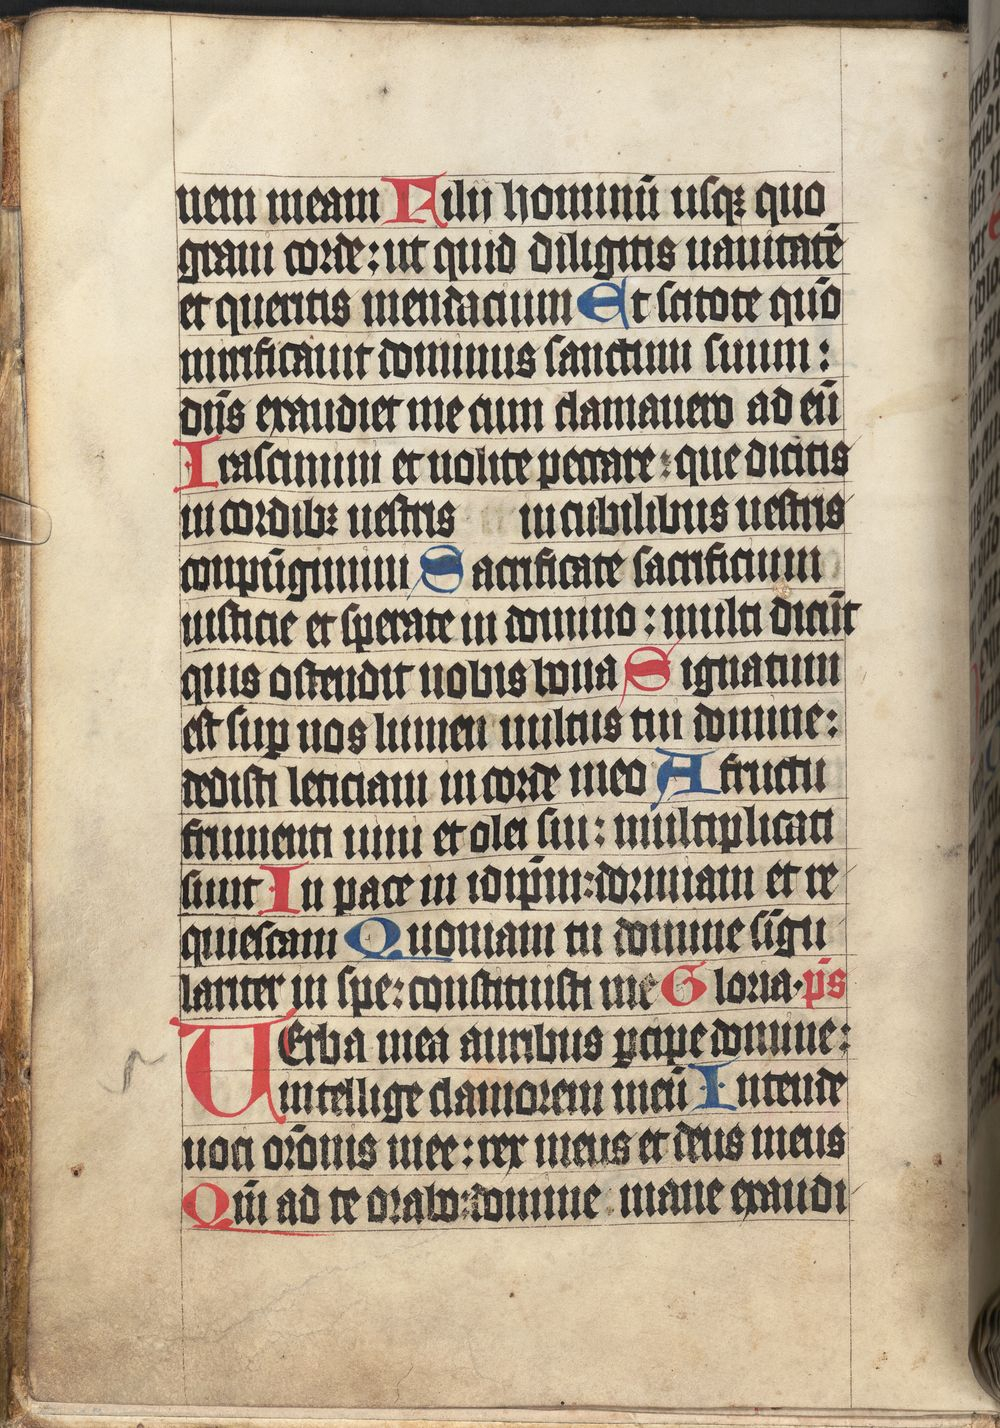 nem meam Filij hominū usqꝫ quo
graui corde: ut quid diligitis uanitatē
et queritis mendacium Et scitote qm̄o
mirificauit dominus sanctum suum:
dn̄s exaudiet me cum clamauero ad eū
Irascimini et nolite peccare: que dicitis
in cordibꝫ uestris in cubilibus uestris
conpūgimini Sacrificate sacrificium
iusticie et sperate in domino: multi dicūt
quis ostendit nobis bona Signatum
est suꝑ nos lumen uultus tui domine:
dedisti leticiam in corde meo A fructu
frumenti uini et olei sui: multiplicati
sunt In pace in idip̄m: dormiam et re
quiescam Quoniam tu domine sīgu
lariter in spe: constituisti me Gloria. ps̄
UErba mea auribus ꝑcipe domine:
intellige clamorem meū Intende
uoci or̄onis mee: rex meus et deus meus
Qm̄ ad te orabo: domine mane exaudi